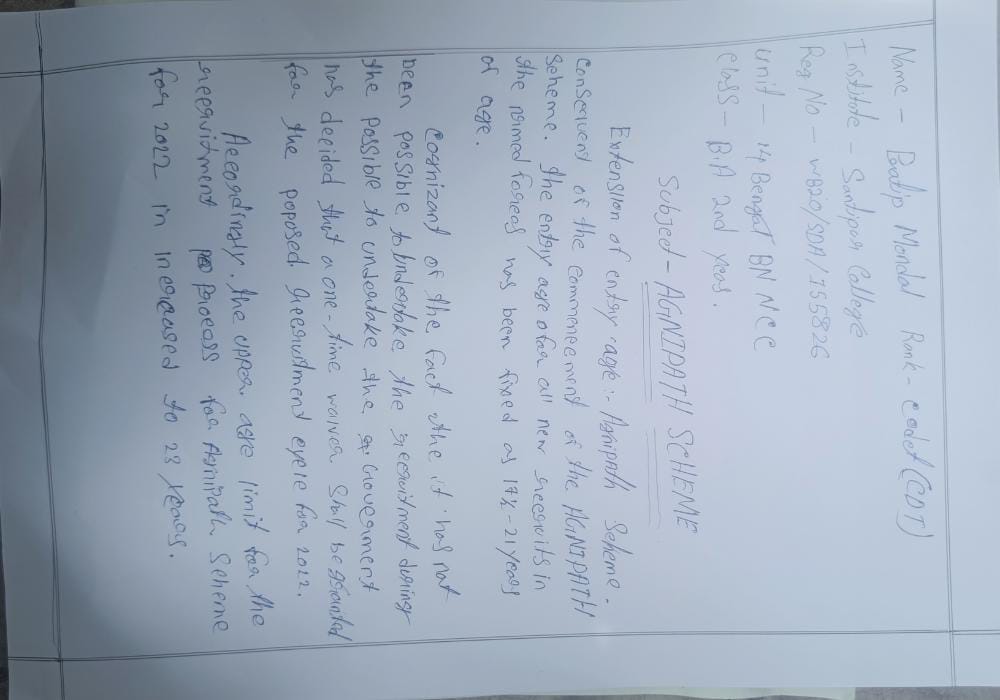 Name - Pradip Mondal Rank - Cadet (CDT)
Institute - Santipur College
Reg No - WB20/SDA/155826
Unit - 14 Bengal BN NCC
Class - B.A 2nd year.
Subject - AGNIPATH SCHEME
Extension of entry age:- Agnipath Scheme.
Consequend of the commencement of the AGNIPATH
Scheme. the entry age of for all new recruits in
the Armed forces has been fixed as 17½ - 21 years
of age.
Cognizant of the fact the it has not
been possible to undertake the recruitment during
the possible to undertake the Government
has decided that a one-time waiver shall be granted
for the poposed recruitment cycle for 2022.
Accordingly. the upper age limit for the
recruitment process for Agnipath Scheme
for 2022 in increased to 23 Years.